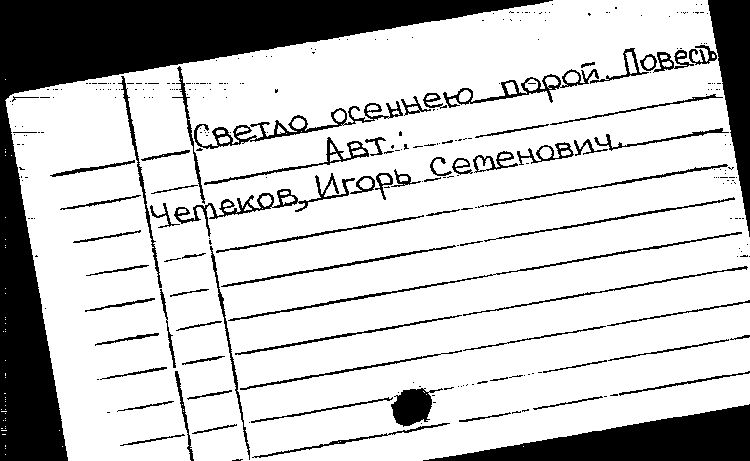 Светло осеннею порой. Повесть
Авт.:
Чемеков, Игорь Семенович.